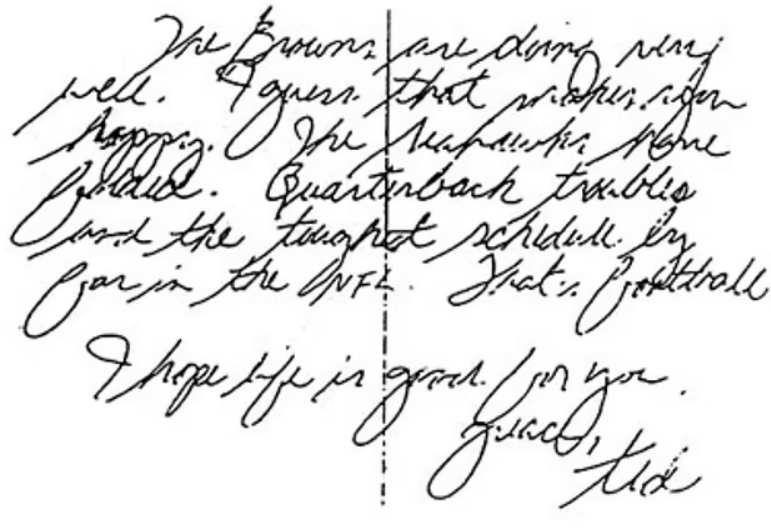 The Browns are doing very
well. I guess that makes you
happy. The Seahawks have
folded. Quarterback troubles
and the toughest schedule by
far in the NFL. That's football
I hope life is good for you.
Ted